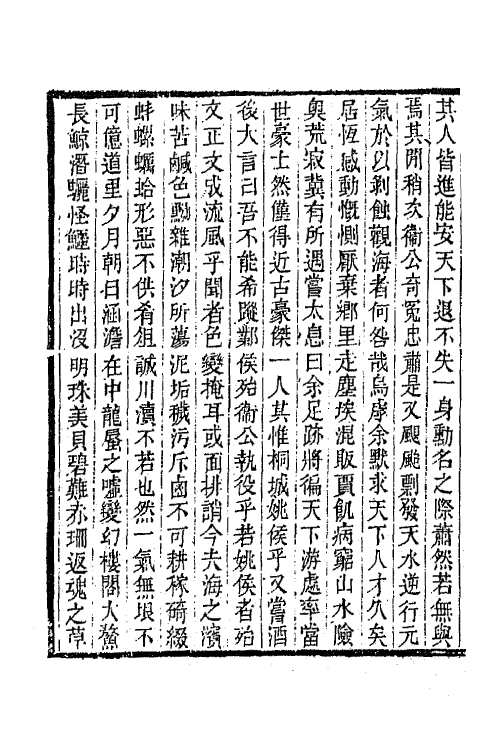 其人皆進能安天下退不失一身勳名之際蕭然若無與
焉其閒稍次衞公奇冤忠肅是又颶颱剽發天水逆行元
氣於以剥蝕觀海者何咎哉烏虖余默求天下人才久矣
居恆感動慨惻厭棄鄉里走塵埃混販賈飢病窮山水險
奥荒寂冀有所遇嘗太息曰余足跡將徧天下游處率當
世豪士然僅得近古豪傑一人其惟桐城姚侯乎又嘗酒
後大言曰吾不能希蹤鄴侯殆衞公執役乎若姚侯者殆
文正文成流風乎聞者色變掩耳或面排誚今夫海之濱
味苦鹹色黝雜潮汐所蕩泥垢穢污斥鹵不可耕稼碕綴
蚌螺蠣蛤形惡不供肴俎誠川瀆不若也然一氣無垠不
可億道里夕月朝日涵澹在中龍蜃之噓變幻樓閣大鰲
長鯨潛驪怪鱷時時出沒明珠美貝碧難赤珊返魂之草